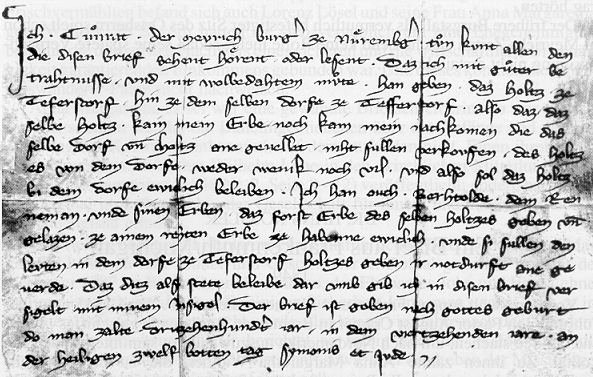 Ich · Cůnrat · der meyrich burgʼ ze Nůrembgʼ tůn kunt allen den
die disen brief sehent hȯrent oder lesent · Daz ich mit gůter be
trahtnisse · vnd mit wolbedahtem můte · han geben · daz holtz ze
Teferstorf · hin ze dem selben dorfe ze Teffersdorf · also daz daz
selbe holtz · kain mein Erbe noch kain mein nachkomen die das
selbe dorf vn̄ holtz ane gevellet · niht sullen verkovfen · des holtz
es von dem dorfe · weder wenik noch vil · vnd also sol daz holtz
bi dem dorfe ewiclich beleiben · Ich han ouch · Berhtolde · dem Ren
neman · vnde sinen Erben · daz forst Erbe des selben holtzes geben vn̄
gelazen · ze ainem rehten Erbe ze habenne ewiclich · vnde si sullen den
leuten in dem dorfe ze Teferstorf holtzes geben ir notdurft ane ge
uerde · Daz ditz alſ stete beleibe dar vmb gib ich in disen brief ver
sigelt mit minem Insigel · Der brief ist geben nach gottes geburt
do man zalte · driuzehenhundʼt iar · in dem viertzehenden iare · an
der heiligen zwelf botten tag · symonis et Jude ·